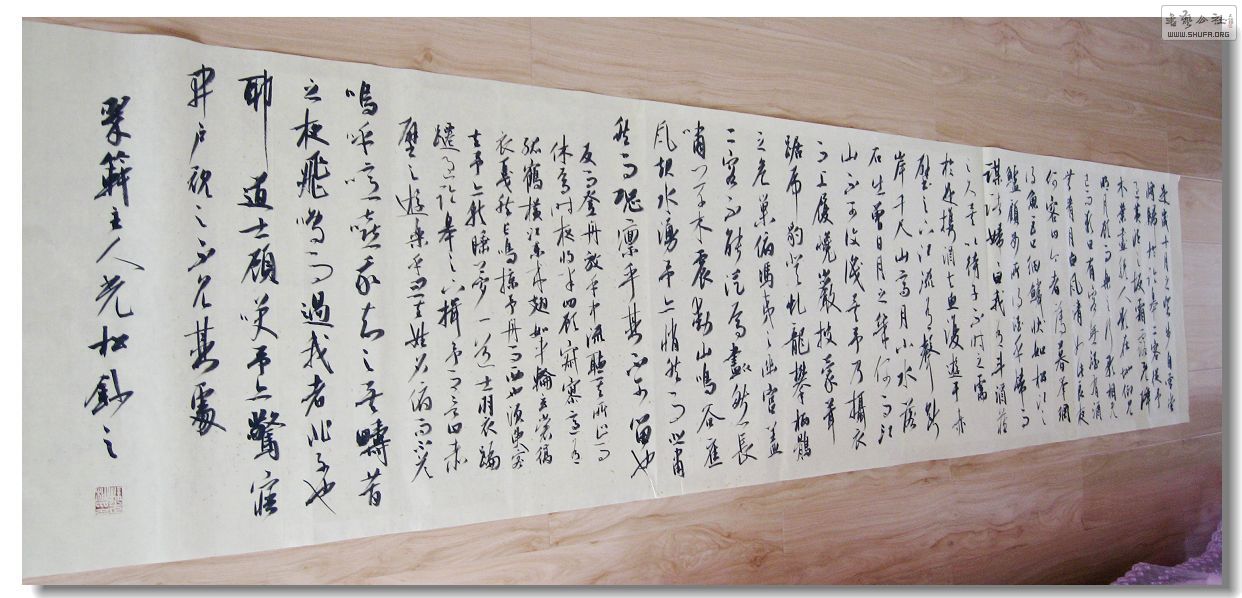 是歲十月之望步自雪堂
將歸於臨皋二客從予
過黃泥之坂霜露既降
木葉盡脫人影在地仰見
明月顧而樂之行歌相答
已而歎曰有客無酒有酒
無肴月白風清如此良夜
何客曰今者薄暮舉網
得魚巨口細鱗狀如松江之
鱸顧安所得酒乎歸而
謀諸婦婦曰我有斗酒藏
之久矣以待子不時之需
於是攜酒與魚復遊于赤
壁之下江流有聲斷
岸千尺山高月小水落
石出曾日月之幾何而江
山不可復識矣予乃攝衣
而上履巉巖披蒙茸
踞虎豹登虬龍攀栖鶻
之危巢俯馮夷之幽宮蓋
二客不能從焉劃然長
嘯草木震動山鳴谷應
風起水湧予亦悄然而悲肅
然而恐凜乎其不可留也
反而登舟放乎中流聽其所止而
休焉時夜將半四顧寂寥適有
孤鶴橫江東來翅如車輪玄裳縞
衣戛然長鳴掠予舟而西也須臾客
去予亦就睡夢一道士羽衣翩
躚過臨皋之下揖予而言曰赤
壁之遊樂乎問其姓名俯而不答
嗚呼噫嘻我知之矣疇昔
之夜飛鳴而過我者非子也
耶道士顧笑予亦驚寤
開戶視之不見其處
主人光松鈔之
书艺公社
WWW.SHUFA.ORG